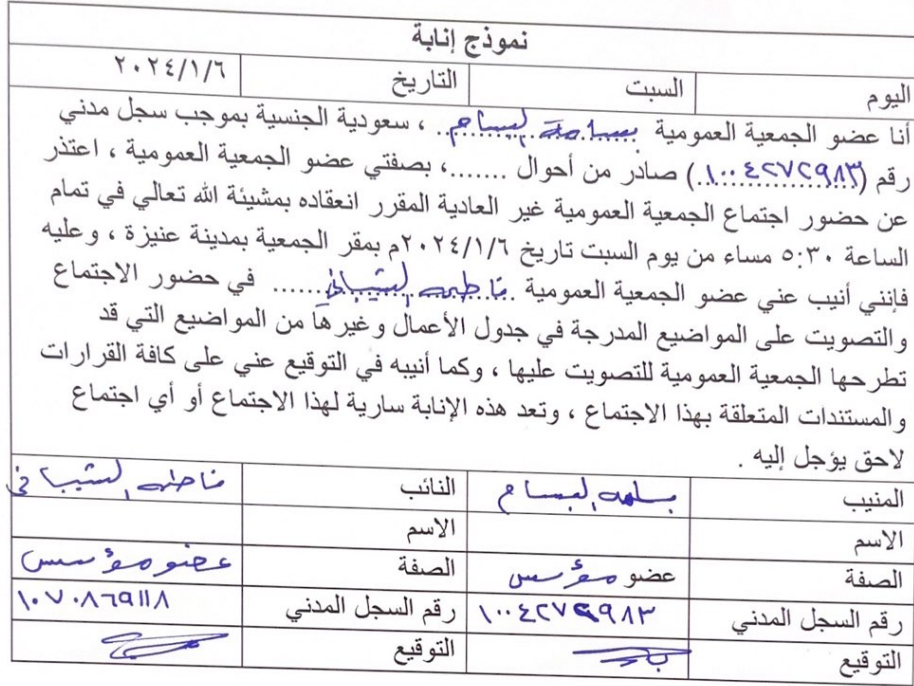 نموذج إنابة
اليوم السبت التاريخ ٢٠٢٤/١/٦
أنا عضو الجمعية العمومية بسلمه البسام .. ، سعودية الجنسية بموجب سجل مدني
رقم (١٠٠٤٢٧٢٩٨٣) صادر من أحوال .......، بصفتي عضو الجمعية العمومية ، اعتذر
عن حضور اجتماع الجمعية العمومية غير العادية المقرر انعقاده بمشيئة الله تعالي في تمام
الساعة ٥:٣٠ مساء من يوم السبت تاريخ ٢٠٢٤/١/٦م بمقر الجمعية بمدينة عنيزة ، وعليه
فإنني أنيب عني عضو الجمعية العمومية فاطمه الشيباني ...... في حضور الاجتماع
والتصويت على المواضيع المدرجة في جدول الأعمال وغيرها من المواضيع التي قد
تطرحها الجمعية العمومية للتصويت عليها ، وكما أنيبه في التوقيع عني على كافة القرارات
والمستندات المتعلقة بهذا الاجتماع ، وتعد هذه الإنابة سارية لهذا الاجتماع أو أي اجتماع
لاحق يؤجل إليه .
المنيب بسلمه البسام النائب فاطمه الشيباني
الاسم الاسم
الصفة عضو مؤسس الصفة عضو مؤسس
رقم السجل المدني ١٠٠٤٢٧٢٩٨٣ رقم السجل المدني ١٠٧٠٨٦٩١١٨
التوقيع التوقيع